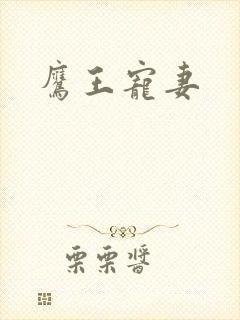 鷹王寵妻
栗栗醬